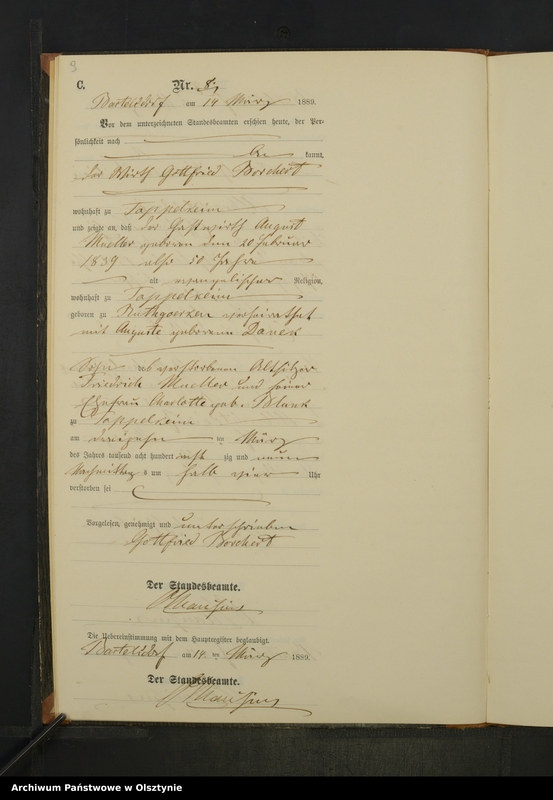 9
C.
Nr. 8.
Bartelsdorf am 14 März 1889.
Vor dem unterzeichneten Standesbeamten erschien heute, der Per-
sönlichkeit nach
be kannt,
der Wirth Gottfried Borchert
wohnhaft zu Tappelkeim
und zeigte an, daß der Gastwirth August
Mueller geboren den 20 Februar
1839 also 50 Jahre
alt evangelischer Religion,
wohnhaft zu Tappelkeim
geboren zu verheirathet
mit Auguste geborene
Sohn des verstorbenen Altsitzer
Friedrich Mueller und seiner
Ehefrau Charlotte geb. Blank
zu Tappelkeim
am dreizehn ten März
des Jahres tausend acht hundert acht zig und neun
Nachmittags um halb vier Uhr
verstorben sei
Vorgelesen, genehmigt und unterschrieben
Gottfried Borchert
Der Standesbeamte.
Die Uebereinstimmung mit dem Hauptregister beglaubigt.
Bartelsdorf am 14. ten März 1889.
Der Standesbeamte.
Archiwum Państwowe w Olsztynie